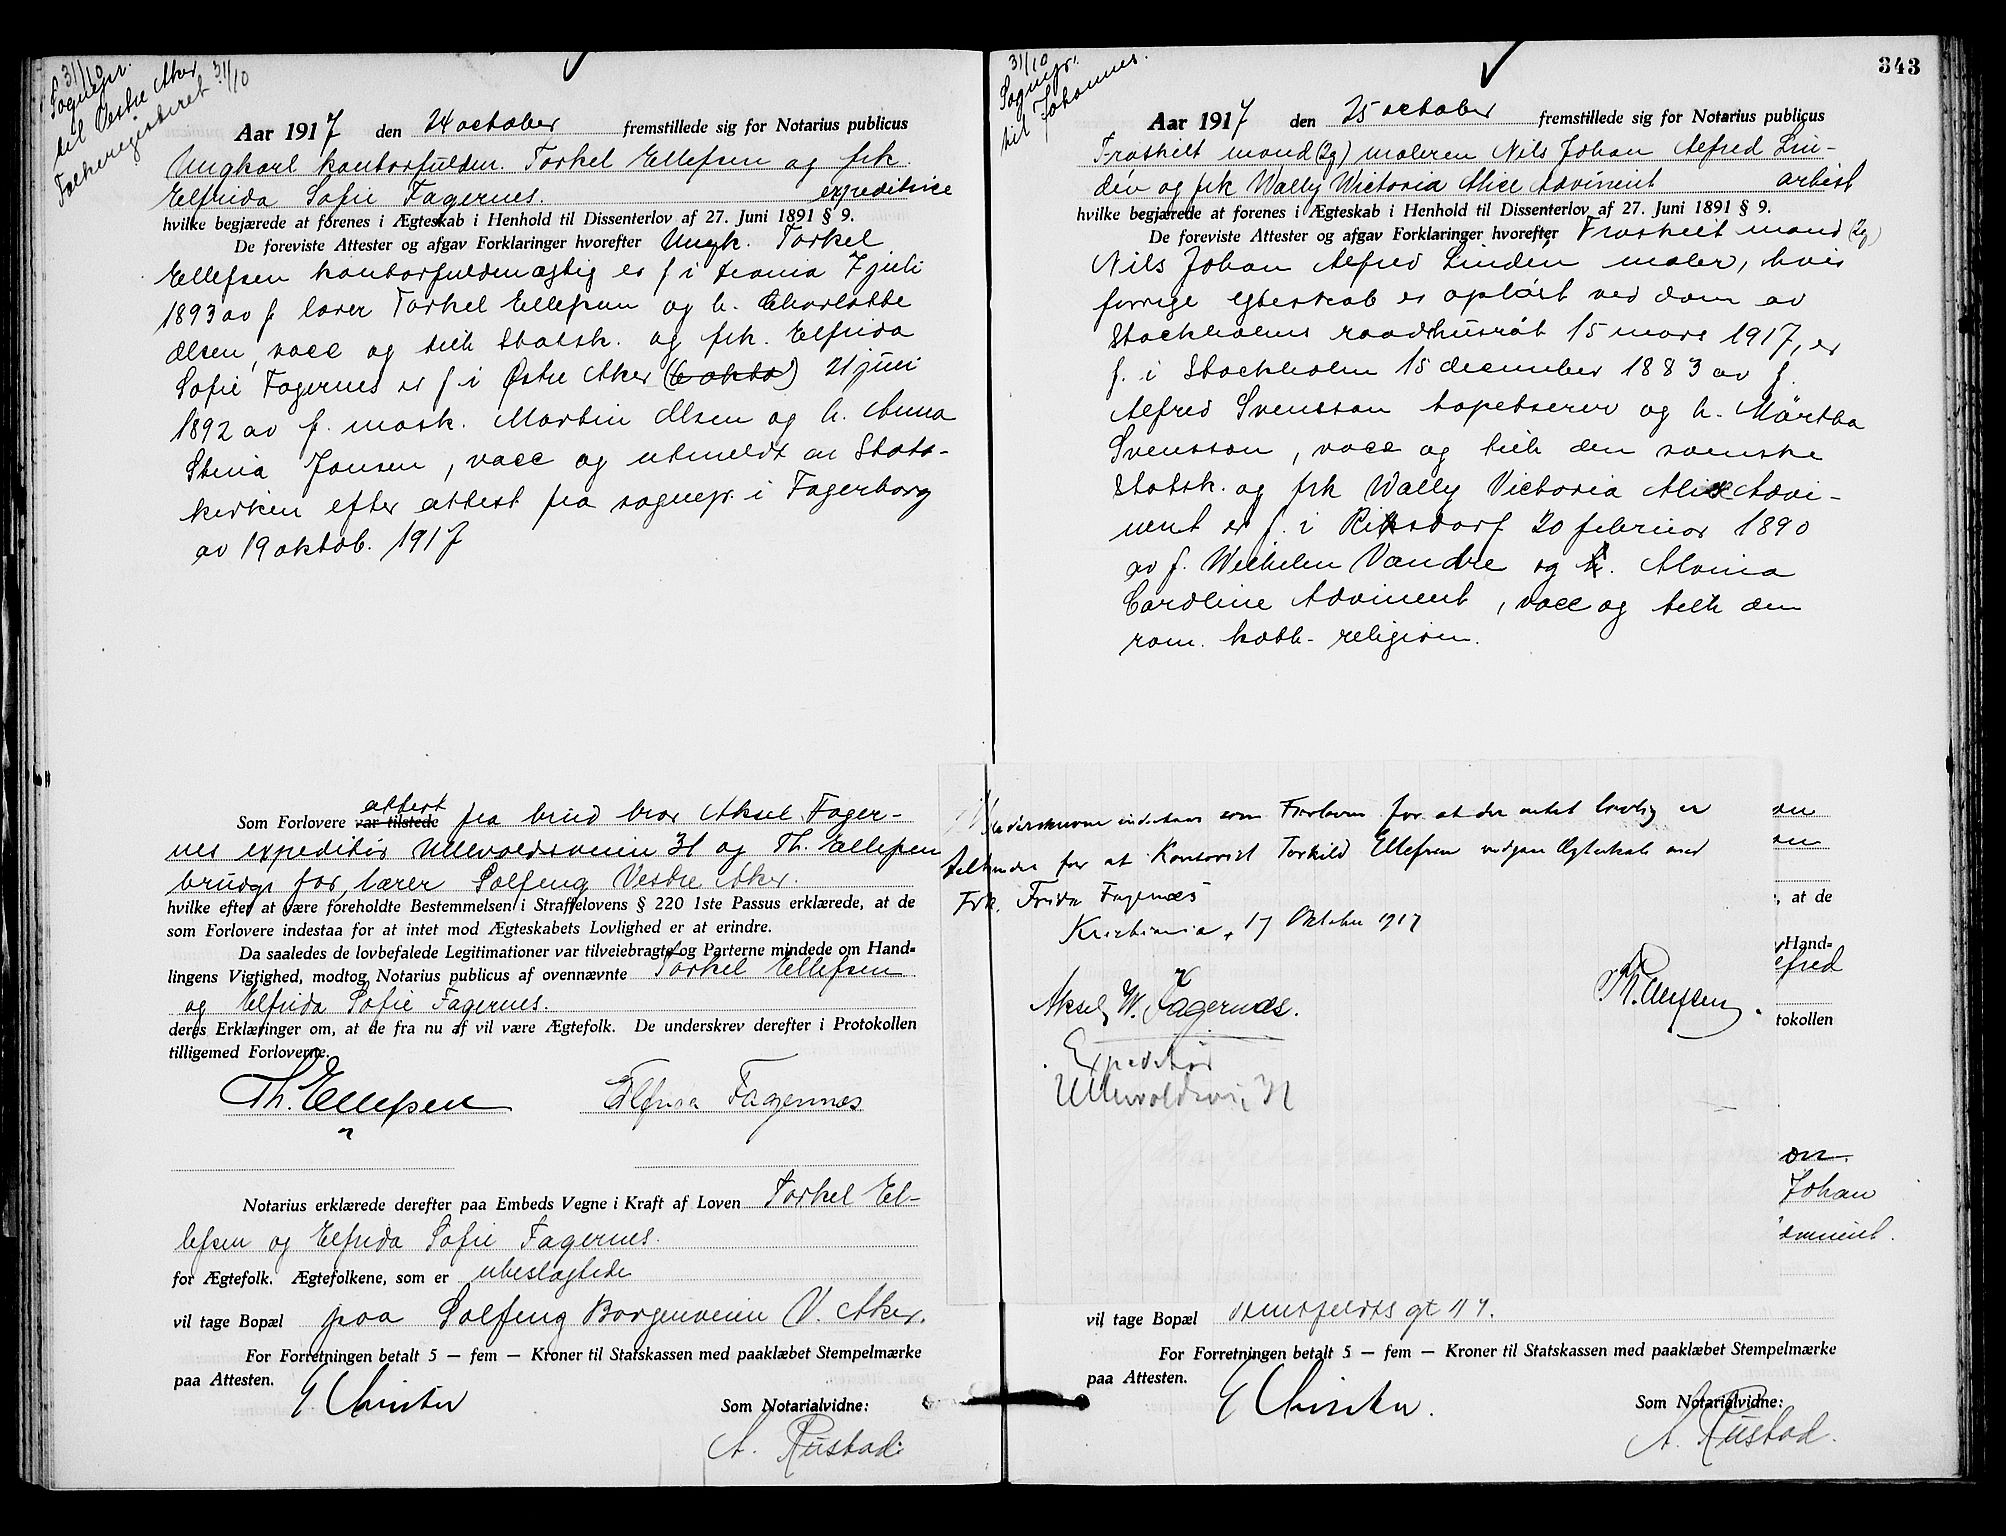 31/10
Sognepr.
til Vestre Aker
Folkeregisteret 31/10
Aar 1917 den 24 october fremstillede sig for Notarius publicus
Ungkarl kontorfuldm. Torkel Ellefsen og frk.
Elfrida Sofie Fagernes. expeditrice
hvilke begjærede at forenes i Ægteskab i Henhold til Dissenterlov af 27. Juni 1891 § 9.
De foreviste Attester og afgav Forklaringer hvorefter Ungk. Torkel
Ellefsen kontorfuldmægtig er f i 7 juli
1893 av f lærer Torkel Ellefsen og h. Charlotte
Olsen, vacc og tilh Statsk. og frk. Elfrida
Sofie Fagernes er f i Østre Aker (6 okto) 21 juni
1892 av f. mask. Martin Olsen og h. Anna
Stina Jansen, vacc og utmeldt av Stats-
kirken efter attest fra sognepr. i Fagerborg
av 19 oktob. 1917
Som Forlovere var tilstede attest fra brud bror Aksel Fager-
nes expeditør Ullevoldsveien 31 og Th. Ellefsen
brudgs far, lærer Solfeng Vestre Aker.
hvilke efter at være foreholdte Bestemmelsen i Straffelovens § 220 1ste Passus erklærede, at de
som Forlovere indestaa for at intet mod Ægteskabets Lovlighed er at erindre.
Da saaledes de lovbefalede Legitimationer var tilveiebragte og Parterne mindede om Hand-
lingens Vigtighed, modtog Notarius publicus af ovennævnte Torkel Ellefsen
og Elfrida Sofie Fagernes.
deres Erklæringer om, at de fra nu af vil være Ægtefolk. De underskrev derefter i Protokollen
tilligemed Forloverne.
Th. Ellefsen Elfrida Fagernnes
Notarius erklærede derefter paa Embeds Vegne i Kraft af Loven Torkel El-
lefsen og Elfrida Sofie Fagernes.
for Ægtefolk. Ægtefolkene, som er ubeslægtede
vil tage Bopæl paa Solfeng Borgenveien V. Aker.
For Forretningen betalt 5 — fem — Kroner til Statskassen med paaklæbet Stempelmærke
paa Attesten.
E Christer
Som Notarialvidne:
A. Rustad.
343
31/10
Sognepr.
til Johannes.
Aar 1917 den 25 october fremstillede sig for Notarius publicus
Fraskilt mand (2g) maleren Nils Johan Alfred Lin-
dén og frk Wally Victoria Alice Advinent artist
hvilke begjærede at forenes i Ægteskab i Henhold til Dissenterlov af 27. Juni 1891 § 9.
De foreviste Attester og afgav Forklaringer hvorefter Fraskilt mand (2g)
Nils Johan Alfred Lindén maler, hvis
forrige egteskab er opløst ved dom av
Stockholms raadhusrät 15 mars 1917, er
f. i Stockholm 15 december 1883 av f.
Alfred Svensson tapetserer og h. Märtha
Svensson, vacc og tilh den svenske
Statsk. og frk Wally Victoria Alice Advi-
nent er f. i Rixsdorf 20 februar 1890
av f. Wilhelm Vandre og h. Alvina
Caroline Advinent, vacc og tilh den
rom. kath. religion.
Undertegnede indestaar som Forlover for at der intet lovlig er
tilhinder for at Kontorist Torkild Ellefsen indgaar Ægteskab med
Frk. Frida Fagernæs
Kristiania, 17 Oktober 1917
Aksel W. Fagernæs. Th. Ellefsen.
Expeditør
Ullevoldsvei 31
, at de
Hand-
efred
tokollen
Johan
vil tage Bopæl gt 44.
For Forretningen betalt 5 — fem — Kroner til Statskassen med paaklæbet Stempelmærke
paa Attesten.
E Christer.
Som Notarialvidne:
A. Rustad.